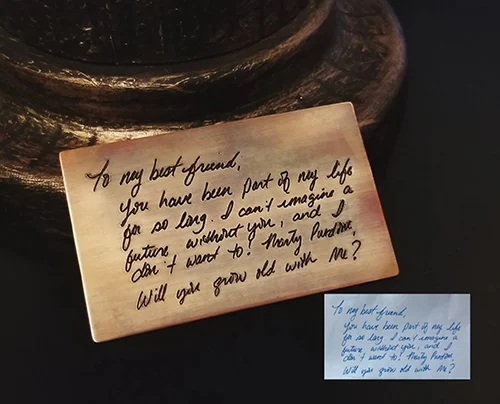 To my best friend,
You have been part of my life
for so long. I can't imagine a
future without you, and I
don't want to! Marty Purdom,
Will you grow old with Me?
To my best friend,
You have been part of my life
for so long I can't imagine a
future without you, and I
don't want to! Marty Purdom,
Will you grow old with Me?